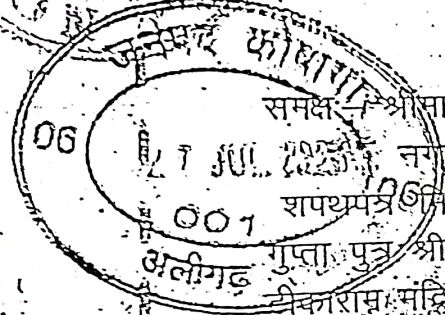 कोषागार
समक्ष – श्रीमा
06
21 JUL 2025
नग
001
शपथपत्र
अलीगढ़
गुप्ता पुत्र श्री
टीकाराम मंदि